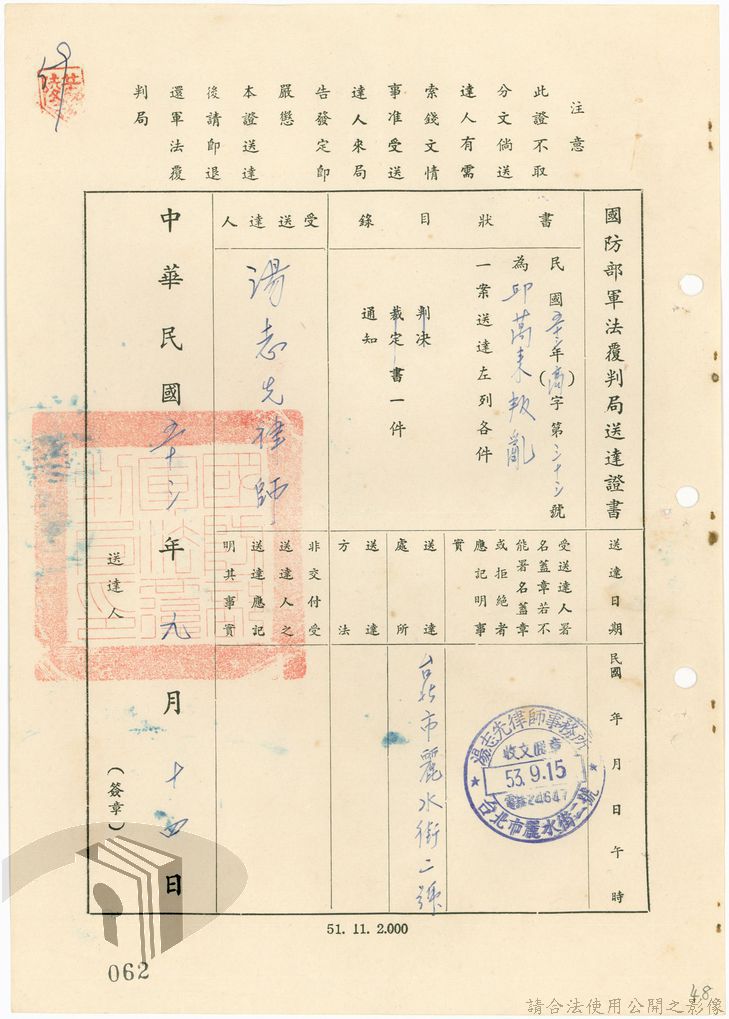 注意
此證不取
分文倘送
達人有需
索錢文情
事准受送
達人來局
告發定卽
嚴懲
本證送達
後請卽退
還軍法覆
判局
國防部軍法覆判局送達證書
書狀目錄
民國五十三年(高)字第三十三號
為邱萬來叛亂
一案送達左列各件
判決
裁定書一件
通知
受送達人
湯志先律師
送達日期
民國 年 月 日 午 時
受送達人署
名蓋章若不
能署名蓋章
或拒絕者
應記明事
實
湯志先律師事務所
收文
53.9.15
電話24647
台北市麗水街二號
送達處所
台北市麗水街二號
送達方法
非交付受
送達人之
送達應記
明其事實
中華民國五十三年九月十四日
送達人
(簽章)
51. 11. 2.000
062
48
請合法使用公開之影像